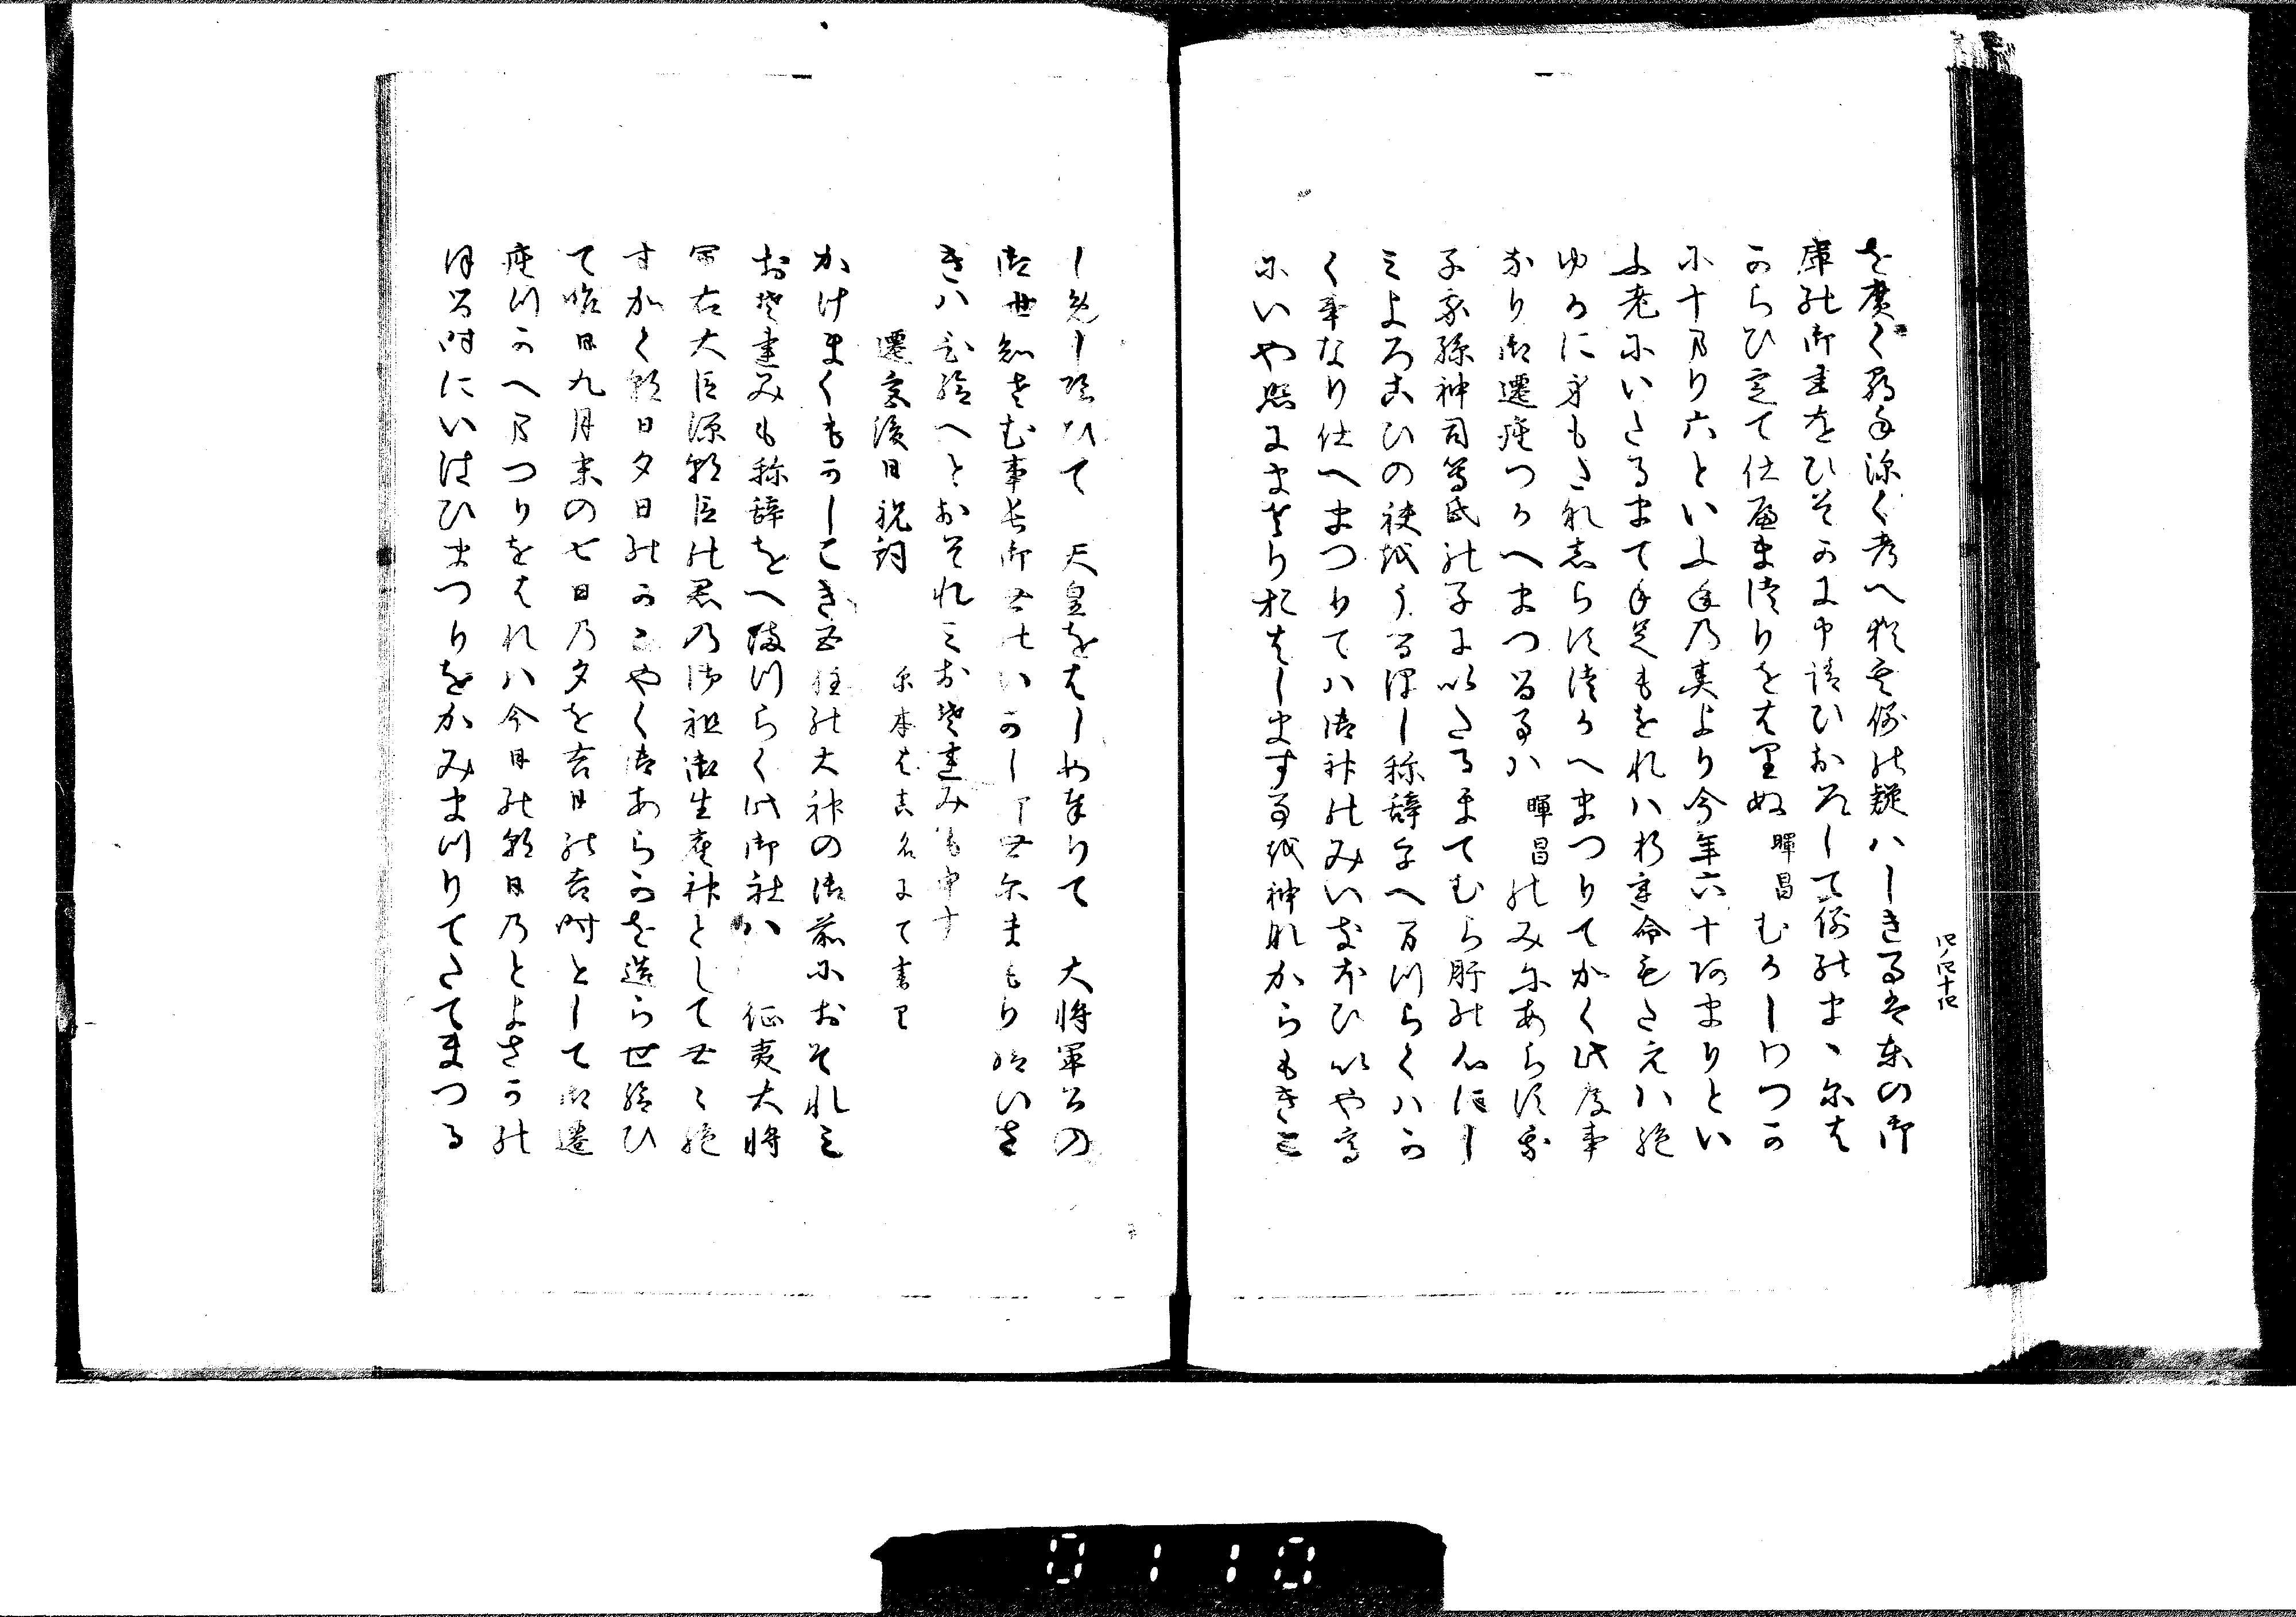 を広く尋ね深く考へ猶も例の疑ハしきるは東の御
庫の御書をひそかに申請ひおろして例のまゝ尓は
からひ定て仕奉まつりをはりぬ 暉昌むかしわつか
に十あり六といふ年の真より今年六十あまりとい
ふ老にいたるまて手足もをれハ折遠命もたえハ絶
ゆるに身もたなしらす仕へまつりてかく此度事
なり御遷座つかへまつるハ 暉昌のみにあらす家
子家孫神司等氏の子にいたるまてむら肝の心にし
みよろこひの袂をうるほし称辞
く事なり仕へまつりてハ御神のみいきほひいや高
にいや照にまさりおはしますを神なからもきこ
四ノ四十四
しめし給ひて 天皇をはしめ奉りて 大将軍公の
御世知さむ事長御世のいかし御世尓まもり給いさ
きハひ給へとおそれミおそれみも申す
遷宮後日祝詞 原本は真名にて書り
かけまくもかしこき五柱の大神の御前におそれミ
おそれみも称辞をへまつらく此御社ハ 征夷大将
軍右大臣源朝臣の君の御祖御生産神として世ゝ絶
すかく朝日夕日のかゝやく御あらかを造らせ給ひ
て昨日九月末の七日乃夕を吉日の吉時として御遷
座つかへまつりをはれハ今日の朝日乃とよさかの
ほる時にいはひまつりをかみまつりてたてまつる
0110